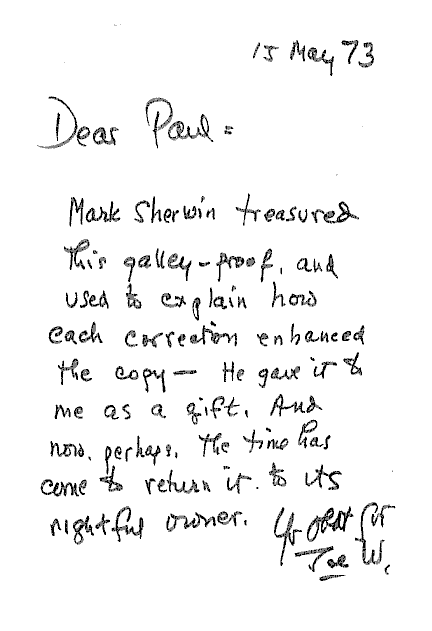 15 May 73
Dear Paul =
Mark Sherwin treasured
this galley-proof, and
used to explain how
each correction enhanced
the copy — He gave it to
me as a gift. And
now, perhaps, the time has
come to return it. to its
rightful owner. Yr Obdt Svt
Joe W.